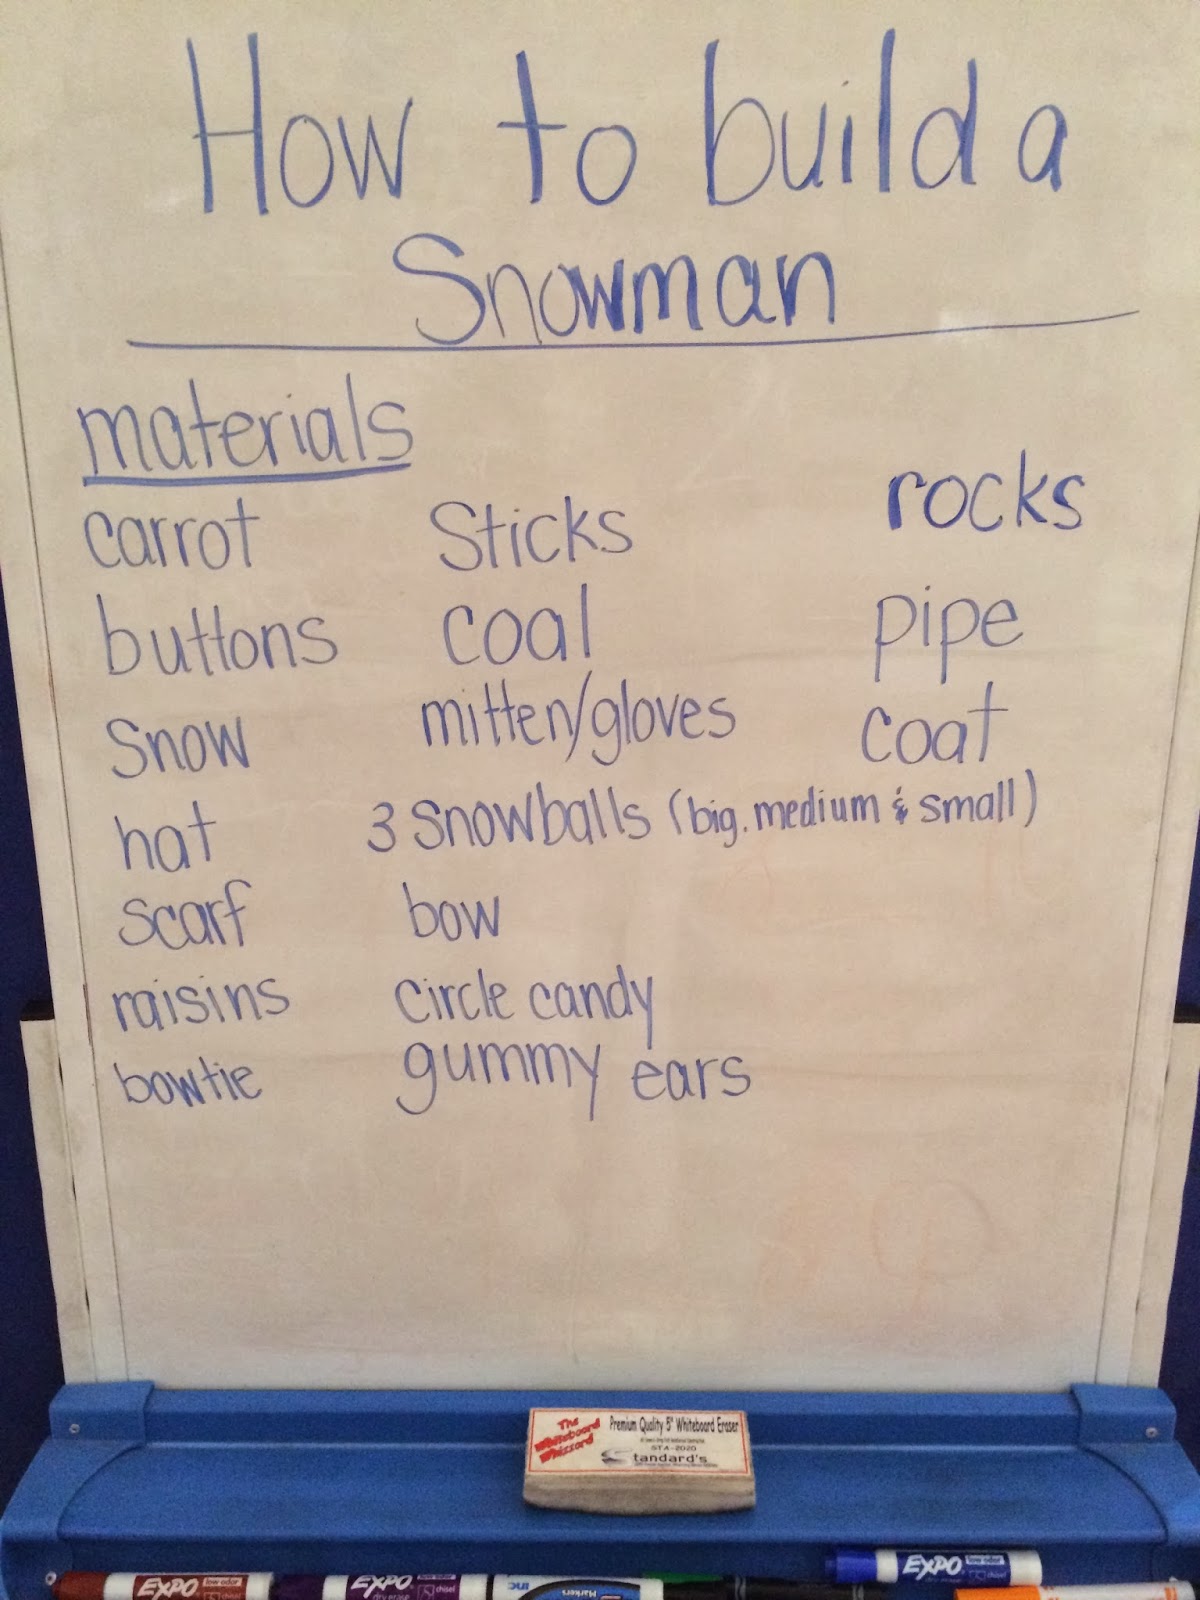 How to build a
Snowman
materials
carrot
buttons
snow
hat
scarf
raisins
bowtie
Sticks
coal
mitten/gloves
3 snowballs (big, medium & small)
bow
circle candy
gummy ears
rocks
pipe
coat
The
Whiteboard
Whizzard
Premium Quality 5" Whiteboard Eraser
STA-2020
Standard's
EXPO low odor chisel
EXPO dry erase chisel
Markers
EXPO low odor chisel